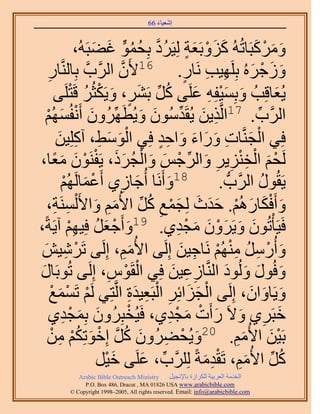 إشعياء 66
وَمَرْكَبَاتُهُ كَزَوْبَعَةٍ لِيَرُدَّ بِحُمُوٍّ غَضَبَهُ،
وَزَجْرَهُ بِلَهِيبِ نَارٍ. 16لأَنَّ الرَّبَّ بِالنَّارِ
يُعَاقِبُ وَبِسَيْفِهِ عَلَى كُلِّ بَشَرٍ، وَيَكْثُرُ قَتْلَى
الرَّبِّ. 17الَّذِينَ يُقَدِّسُونَ وَيُطَهِّرُونَ أَنْفُسَهُمْ
فِي الْجَنَّاتِ وَرَاءَ وَاحِدٍ فِي الْوَسَطِ، آكِلِينَ
لَحْمَ الْخِنْزِيرِ وَالرِّجْسَ وَالْجُرَذَ، يَفْنَوْنَ مَعًا،
يَقُولُ الرَّبُّ. 18وَأَنَا أُجَازِي أَعْمَالَهُمْ
وَأَفْكَارَهُمْ. حَدَثَ لِجَمْعِ كُلِّ الأُمَمِ وَالأَلْسِنَةِ،
فَيَأْتُونَ وَيَرَوْنَ مَجْدِي. 19وَأَجْعَلُ فِيهِمْ آيَةً،
وَأُرْسِلُ مِنْهُمْ نَاجِينَ إِلَى الأُمَمِ، إِلَى تَرْشِيشَ
وَفُولَ وَلُودَ النَّازِعِينَ فِي الْقَوْسِ، إِلَى تُوبَالَ
وَيَاوَانَ، إِلَى الْجَزَائِرِ الْبَعِيدَةِ الَّتِي لَمْ تَسْمَعْ
خَبَرِي وَلاَ رَأَتْ مَجْدِي، فَيُخْبِرُونَ بِمَجْدِي
بَيْنَ الأُمَمِ. 20وَيُحْضِرُونَ كُلَّ إِخْوَتِكُمْ مِنْ
كُلِّ الأُمَمِ، تَقْدِمَةً لِلرَّبِّ، عَلَى خَيْل
Arabic Bible Outreach Ministry الخدمة العربية للكرازة بالإنجيل
P.O. Box 486, Dracut , MA 01826 USA www.arabicbible.com
© Copyright 1998–2005, All rights reserved. Email: info@arabicbible.com